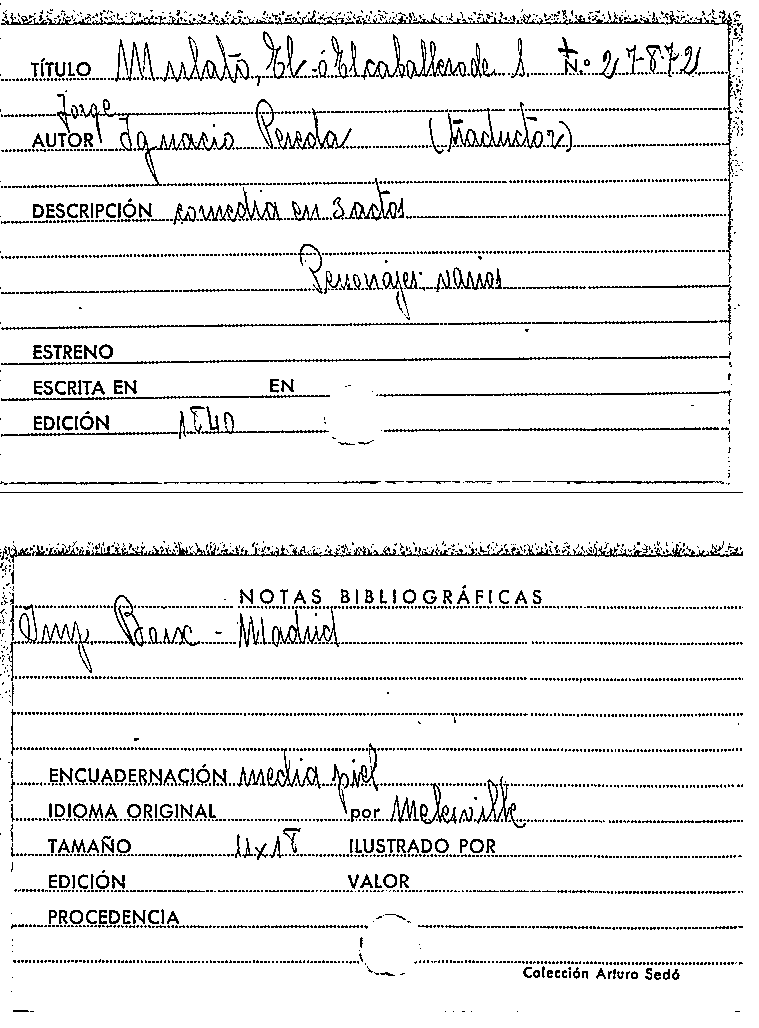 TÍTULO Mulato, El - ó El caballero de S. N.º 27872
Jorge
AUTOR Ignacio Pereda (traductor)
DESCRIPCIÓN comedia en 3 actos
Personajes: varios
ESTRENO
ESCRITA EN EN
EDICIÓN 1840
NOTAS BIBLIOGRÁFICAS
Imp. Boix - Madrid
ENCUADERNACIÓN media piel
IDIOMA ORIGINAL por Melesville
TAMAÑO 11x18 ILUSTRADO POR
EDICIÓN VALOR
PROCEDENCIA
Colección Arturo Sedó